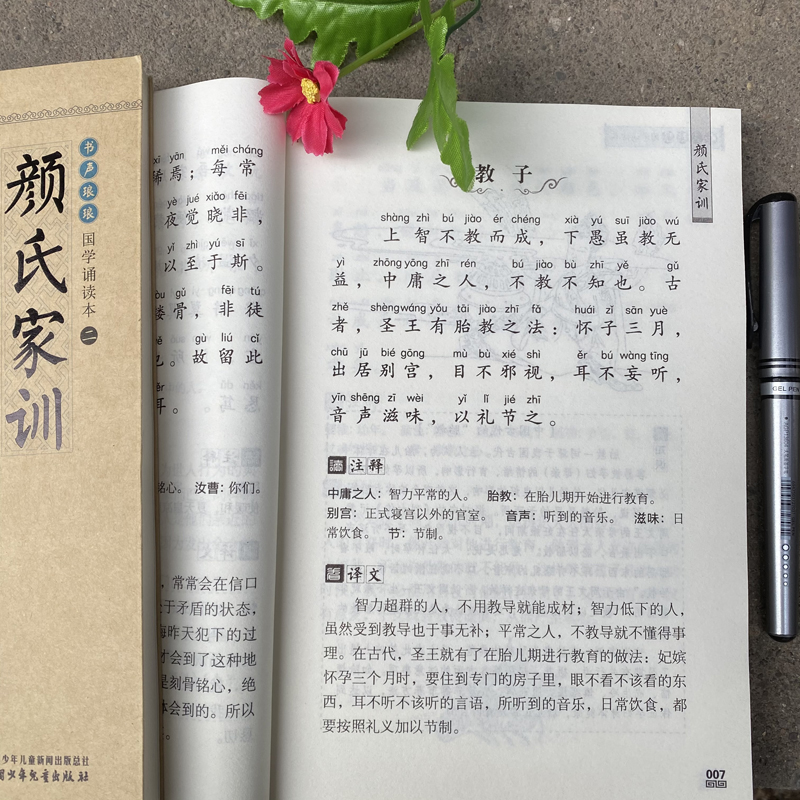 颜氏家训
书声琅琅
国学诵读本
二
少年儿童新闻出版总社
中国少年儿童出版社
měi cháng
焉；每常
yè jué xiǎo fēi
夜觉晓非，
yǐ zhì yú sī
以至于斯。
gǔ fēi tú
骨，非徒
gù liú cǐ
也。故留此
耳。
铭心。 汝曹：你们。
，常常会在信口
于矛盾的状态，
昨天犯下的过
才会到了这种地
是刻骨铭心，绝
体会到的。所以
颜氏家训
教子
shàng zhì bú jiào ér chéng xià yú suī jiào wú
上智不教而成，下愚虽教无
yì zhōng yōng zhī rén bú jiào bù zhī yě gǔ
益，中庸之人，不教不知也。古
zhě shèng wáng yǒu tāi jiào zhī fǎ huái zǐ sān yuè
者，圣王有胎教之法：怀子三月，
chū jū bié gōng mù bù xié shì ěr bú wàng tīng
出居别宫，目不邪视，耳不妄听，
yīn shēng zī wèi yǐ lǐ jié zhī
音声滋味，以礼节之。
注释
中庸之人：智力平常的人。 胎教：在胎儿期开始进行教育。
别宫：正式寝宫以外的官室。 音声：听到的音乐。 滋味：日
常饮食。 节：节制。
译文
智力超群的人，不用教导就能成材；智力低下的人，
虽然受到教导也于事无补；平常之人，不教导就不懂得事
理。在古代，圣王就有了在胎儿期进行教育的做法：妃嫔
怀孕三个月时，要住到专门的房子里，眼不看不该看的东
西，耳不听不该听的言语，所听到的音乐，日常饮食，都
要按照礼义加以节制。
007
GEL PEN